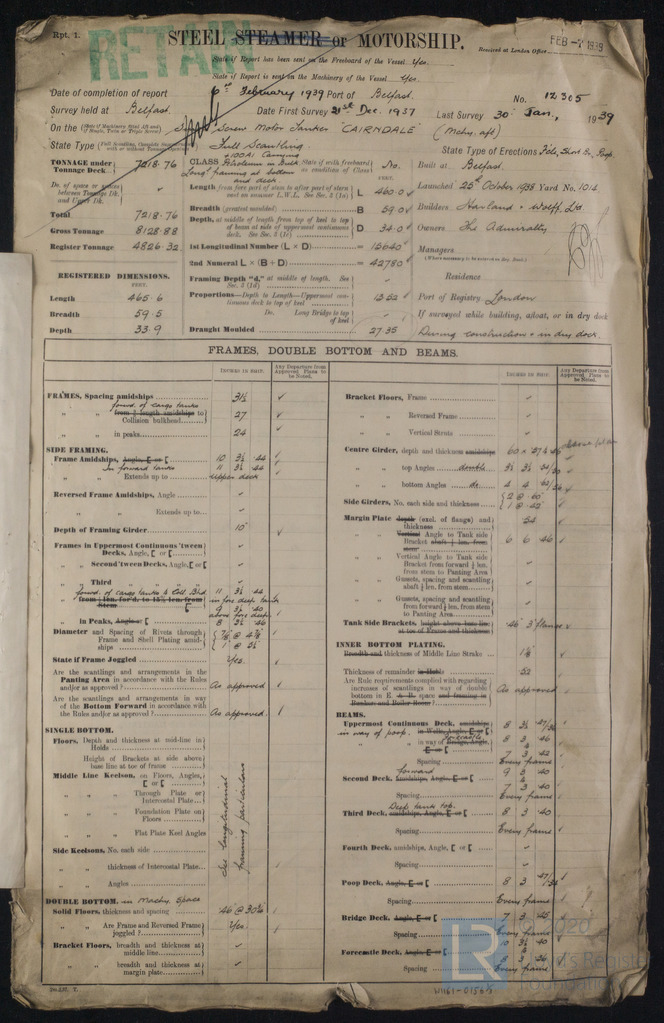 Rpt. 1.
RETAIN
STEEL STEAMER or MOTORSHIP.
Received at London Office FEB -7 1939
State if Report has been sent on the Freeboard of the Vessel Yes.
State if Report is sent on the Machinery of the Vessel Yes.
Date of completion of report 6th February 1939 Port of Belfast. No. 12305
Survey held at Belfast. Date First Survey 21st Dec. 1937 Last Survey 30 Jan., 1939
On the Screw Motor Tanker "CAIRNDALE" (Mchy. aft)
State Type Full Scantling State Type of Erections
TONNAGE under Tonnage Deck 7218.76
Do. of space or spaces between Tonnage Dk. and Upper Dk.
Total 7218.76
Gross Tonnage 8128.88
Register Tonnage 4826.32
REGISTERED DIMENSIONS.
FEET.
Length 465.6
Breadth 59.5
Depth 33.9
CLASS +100A1 Carrying Petroleum in Bulk State if with freeboard condition in Class No.
Longl framing at bottom and deck
FEET.
Length from fore part of stem to after part of stern post on summer L.W.L. See Sec. 2 (1a) L 460.0
Breadth (greatest moulded) B 59.0
Depth, at middle of length from top of keel to top of beam at side of uppermost continuous deck. See Sec. 2 (1c) D 34.0
1st Longitudinal Number (L × D) = 15640
2nd Numeral L × (B + D) = 42780
Framing Depth "d," at middle of length. See Sec. 3 (1d)
Proportions—Depth to Length—Uppermost continuous deck to top of keel 13.52
Do. Long Bridge to top of keel
Draught Moulded 27.35
Built at Belfast.
Launched 25th October 1938 Yard No. 1014
Builders Harland & Wolff. Ltd
Owners The Admiralty
Managers
(Where necessary to be entered in Reg. Book.)
Residence
Port of Registry London
If surveyed while building, afloat, or in dry dock
During construction & in dry dock.
FRAMES, DOUBLE BOTTOM AND BEAMS.
INCHES IN SHIP.
Any Departure from Approved Plans to be Noted.
FRAMES, Spacing amidships 31½
" " from ⅗ length amidships to Collision bulkhead forwd. of cargo tanks 27
" " in peaks 24
SIDE FRAMING.
Frame Amidships, Angle, E or [ 10 3½ .44
in forward tanks 11 3½ .44
" " Extends up to upper deck
Reversed Frame Amidships, Angle
" " Extends up to
Depth of Framing Girder 10
Frames in Uppermost Continuous 'tween Decks, Angle, [ or [
" Second 'tween Decks, Angle, [ or [
" Third " " " "
forwd. of cargo tanks to Coll Bhd.
" from ⅗ len. for'd. to 15% len. from Stem 11 3½ .44 in fore deep tank
9 3½ .40 above fore deep
" in Peaks, Angle or [ 8 3½ .46
Diameter and Spacing of Rivets through Frame and Shell Plating amidships
State if Frame Joggled Yes.
Are the scantlings and arrangements in the Panting Area in accordance with the Rules and/or as approved? As approved
Are the scantlings and arrangements in way of the Bottom Forward in accordance with the Rules and/or as approved? As approved.
SINGLE BOTTOM.
Floors, Depth and thickness at mid-line in Holds
" Height of Brackets at side above base line at toe of frame
Middle Line Keelson, on Floors, Angles, [ or [
" " Through Plate or Intercostal Plate
" " Foundation Plate on Floors
" " Flat Plate Keel Angles
Side Keelsons, No. each side
" " thickness of Intercostal Plate
" " Angles
See longitudinal framing particulars
DOUBLE BOTTOM. in Machy. Space
Solid Floors, thickness and spacing .46 @ 30½
" " Are Frame and Reversed Frame joggled? Yes.
Bracket Floors, breadth and thickness at middle line
" " breadth and thickness at margin plate
INCHES IN SHIP.
Any Departure from Approved Plans to be Noted.
Bracket Floors, Frame
" " Reversed Frame
" " Vertical Struts
Centre Girder, depth and thickness amidships
" " top Angles double
" " bottom Angles do.
Side Girders, No. each side and thickness 2 @ .60 1 @ .42
Margin Plate depth (excl. of flange) and thickness .54
" " Vertical Angle to Tank side Bracket abaft ¼ len. from stem 6 6 .46
" " Vertical Angle to Tank side Bracket from forward ¼ len. from stem to Panting Area
" " Gussets, spacing and scantling abaft ¼ len. from stem
" " Gussets, spacing and scantling from forward ¼ len. from stem to Panting Area
Tank Side Brackets, height above base line at toe of Frame and thickness .46 3" flange
INNER BOTTOM PLATING.
Breadth and thickness of Middle Line Strake
Thickness of remainder in Hold .52
Are Rule requirements complied with regarding increases of scantlings in way of double bottom in E. & B. space and framing in Bunkers and Boiler Room? As approved
BEAMS.
Uppermost Continuous Deck, amidships in way of poop, Angle, E or [
" " in way of Bridge, Angle, E or [ forecastle 8 3 .46
7 3 .42
Spacing Every frame
Second Deck, amidships, Angle, E or [ forward 9 3 .40
7 3 .40
Spacing Every frame
Third Deck, amidships, Angle, E or [ Deep tank top. 8 3 .40
Spacing Every frame
Fourth Deck, amidships, Angle, [ or [
Spacing
Poop Deck, Angle, E or [
Spacing Every frame
Bridge Deck, Angle, E or [ 7 3 .45
Spacing Every frame
Forecastle Deck, Angle, E or [ 10 3½ .40
Spacing Every frame
LR
© 2020
Lloyd's Register
Foundation
W1161-0156